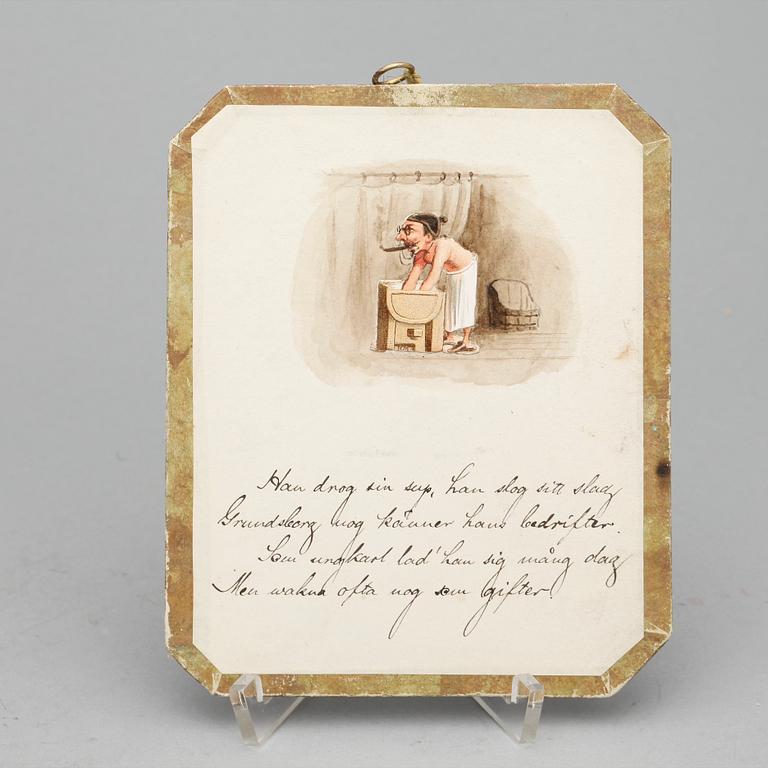 Han drog sin sup, han slog sitt slag
Grundsborg nog känner hans bedrifter.
Som ungkarl lad' han sig mång dag
Men wakna ofta nog som gifter.